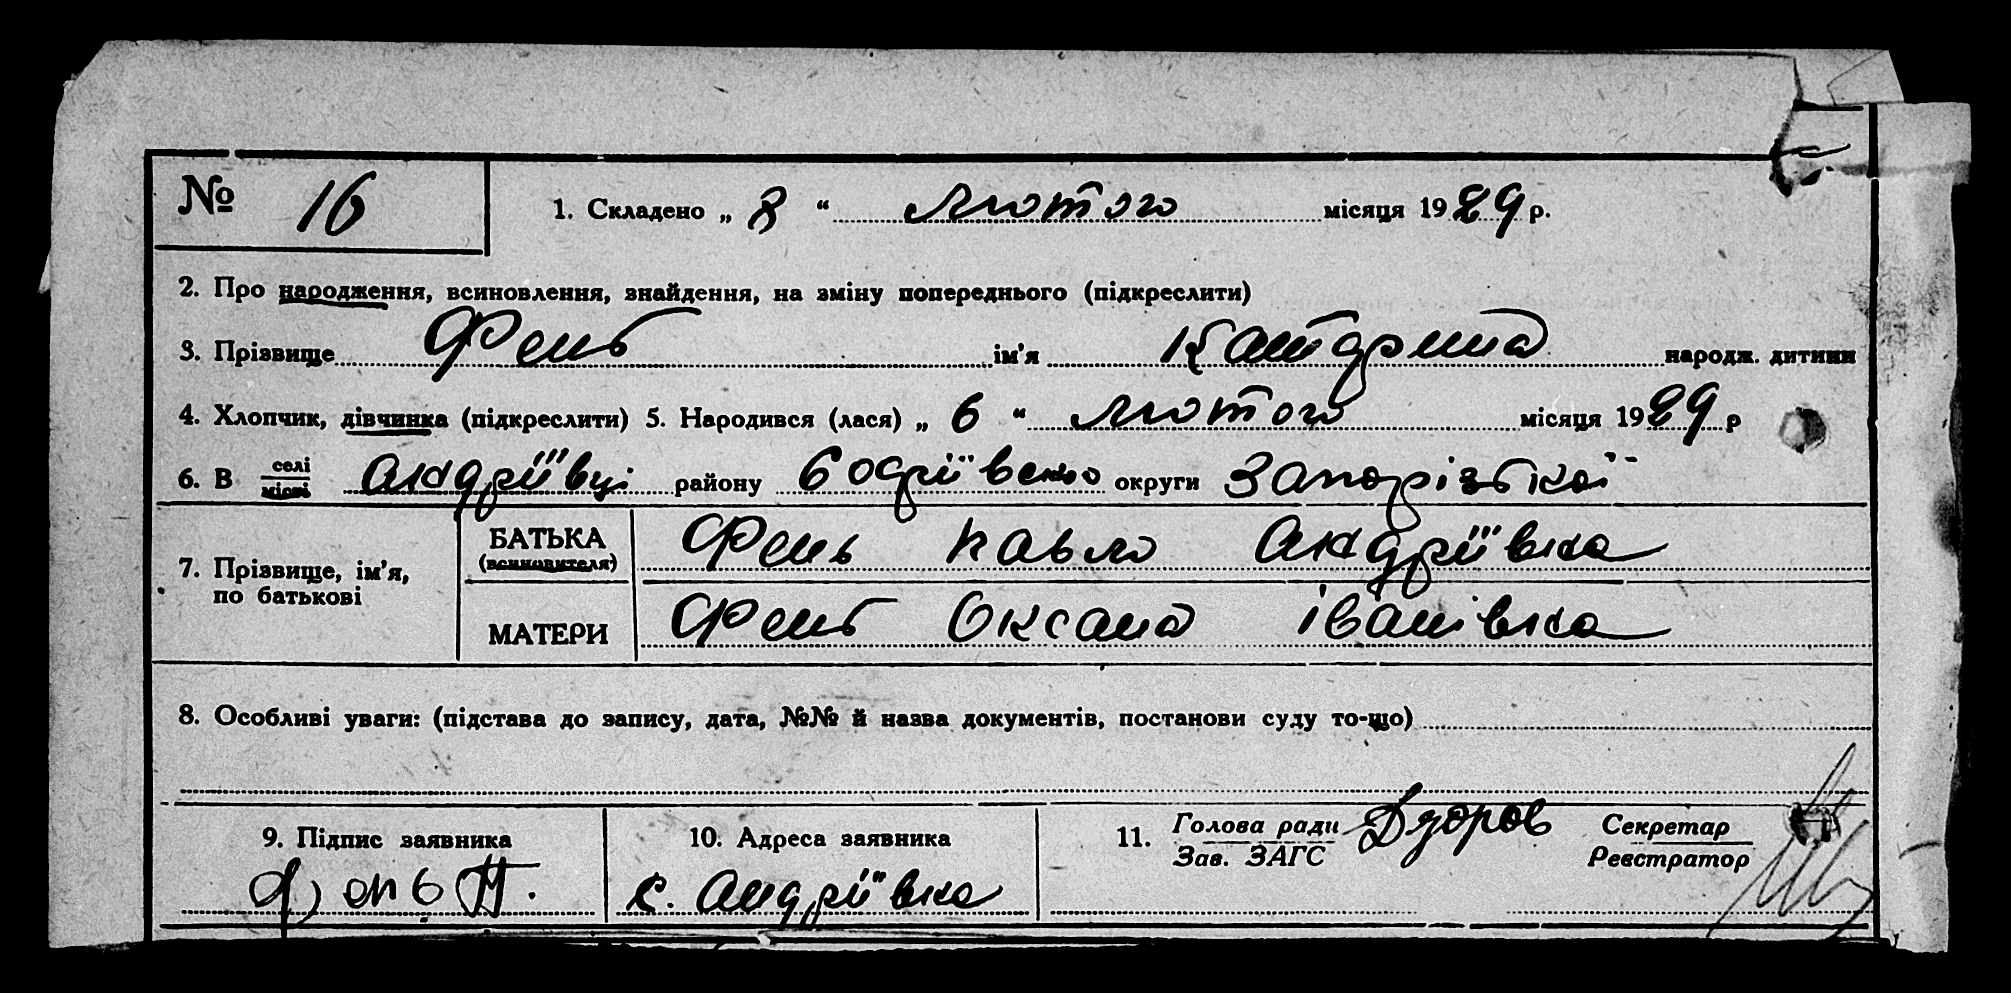 № 16 1. Складено „ 8 “ лютого місяця 1929 р.
2. Про народження, всиновлення, знайдення, на зміну попереднього (підкреслити)
3. Прізвище Фень ім'я Катерина народж. дитини
4. Хлопчик, дівчинка (підкреслити) 5. Народився (лася) „ 6 “ лютого місяця 1929 р
6. В селі місті Андріївці району округи Запорізької
7. Прізвище, ім'я, по батькові
БАТЬКА (всиновителя) Фень Павло Андріївка
МАТЕРИ Фень Оксана Іванівка
8. Особливі уваги: (підстава до запису, дата, №№ й назва документів, постанови суду то-що)
9. Підпис заявника
Фень П.
10. Адреса заявника
с. Андріївка
11. Голова ради
Зав. ЗАГС
Секретар
Реєстратор